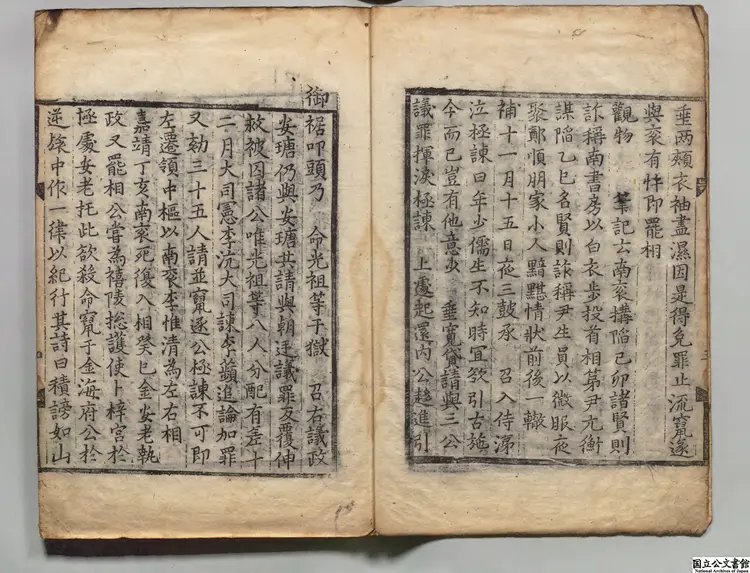 垂两頰衣袖盡濕因是得免罪止流竄逐
與衮有忤即罷相
觀物 筆記云南衮搆陷己卯諸賢則
詐稱南書房以白衣步投首相第尹元衡
謀陷乙巳名賢則詐稱尹生員以微服夜
聚鄭順朋家小人黯黮情狀前後一轍
補十一月十五日夜三鼓承 召入侍涕
泣極諫曰年少儒生不知時宜欲引古施
今而已豈有他意少 垂寬貸請與三公
議罪揮淚極諫 上遽起還內公趍進引
御裾叩頭乃 命光祖等于獄 召右議政
安瑭仍與安瑭共請與朝廷議罪反覆伸
救被囚諸公唯光祖等八人分配有差十
二月大司憲李沆大司諫李蘋追論加罪
又劾三十五人請並竄逐公極諫不可即
左遷領中樞以南衮李惟清為左右相
嘉靖丁亥南衮死復入相癸巳金安老執
政又罷相公嘗為禧陵摠護使卜梓宮於
極處安老托此欲殺命竄于金海府公於
逆旅中作一律以紀行其詩曰積謗如山
国立公文書館
National Archives of Japan